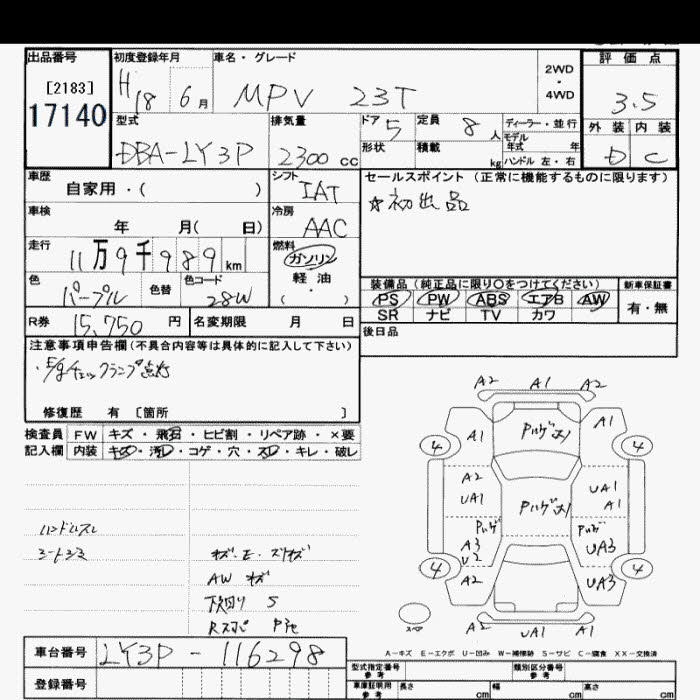 出品番号
[2183]
17140
初度登録年月
H18 6月
車名・グレード
MPV 23T
2WD
・
4WD
評価点
3.5
外装 内装
D C
型式
DBA-LY3P
排気量
2300 cc
ドア 5
形状
定員 8人
積載 kg
ディーラー・並行
モデル
年式 年
ハンドル 左・右
車歴
自家用・( )
シフト
IAT
セールスポイント (正常に機能するものに限ります)
☆初出品
車検
年 月( 日)
冷房
AAC
走行
11万9千989km
燃料
ガソリン
軽油
( ・ )
色
パープル
色替
色コード
28W
装備品 (純正品に限り○をつけてください)
PS PW ABS エアB AW
SR ナビ TV カワ
新車保証書
有・無
R券 15,750円
名変期限 月 日
後日品
注意事項申告欄(不具合内容等は具体的に記入して下さい)
・E/gチェックランプ点灯
修復歴 有 〔箇所 〕
検査員 FW キズ・飛石・ヒビ割・リペア跡・×要
記入欄 内装 キズ・汚レ・コゲ・穴・スレ・キレ・破レ
ハンドルスレ
シートシミ
キズ・E・スリキズ
AW キズ
下廻り S
A2 A1 A2
A1
A1
4
4
A2
UA1
UA1
A1
A3
U2
UA3
4
4
A2
UA3
A2 UA1 A2
A-キズ E-エクボ U-凹み W-補修跡 S-サビ C-腐食 XX-交換済
車台番号 LY3P-116298
登録番号
型式指定番号
参考
類別区分番号
参考
車庫証明用
参考
長さ cm
幅 cm
高さ cm